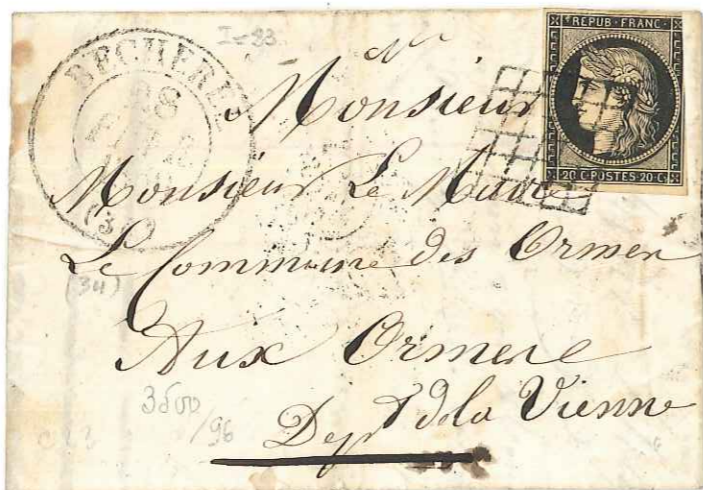 REPUB·FRANC·
20 C·POSTES·20 C·
BECHEREL
28
(34)
I=83
Monsieur
Monsieur Le Maire
Le Commune des Ormes
Aux Ormese
Dept dela Vienne
3500
/96